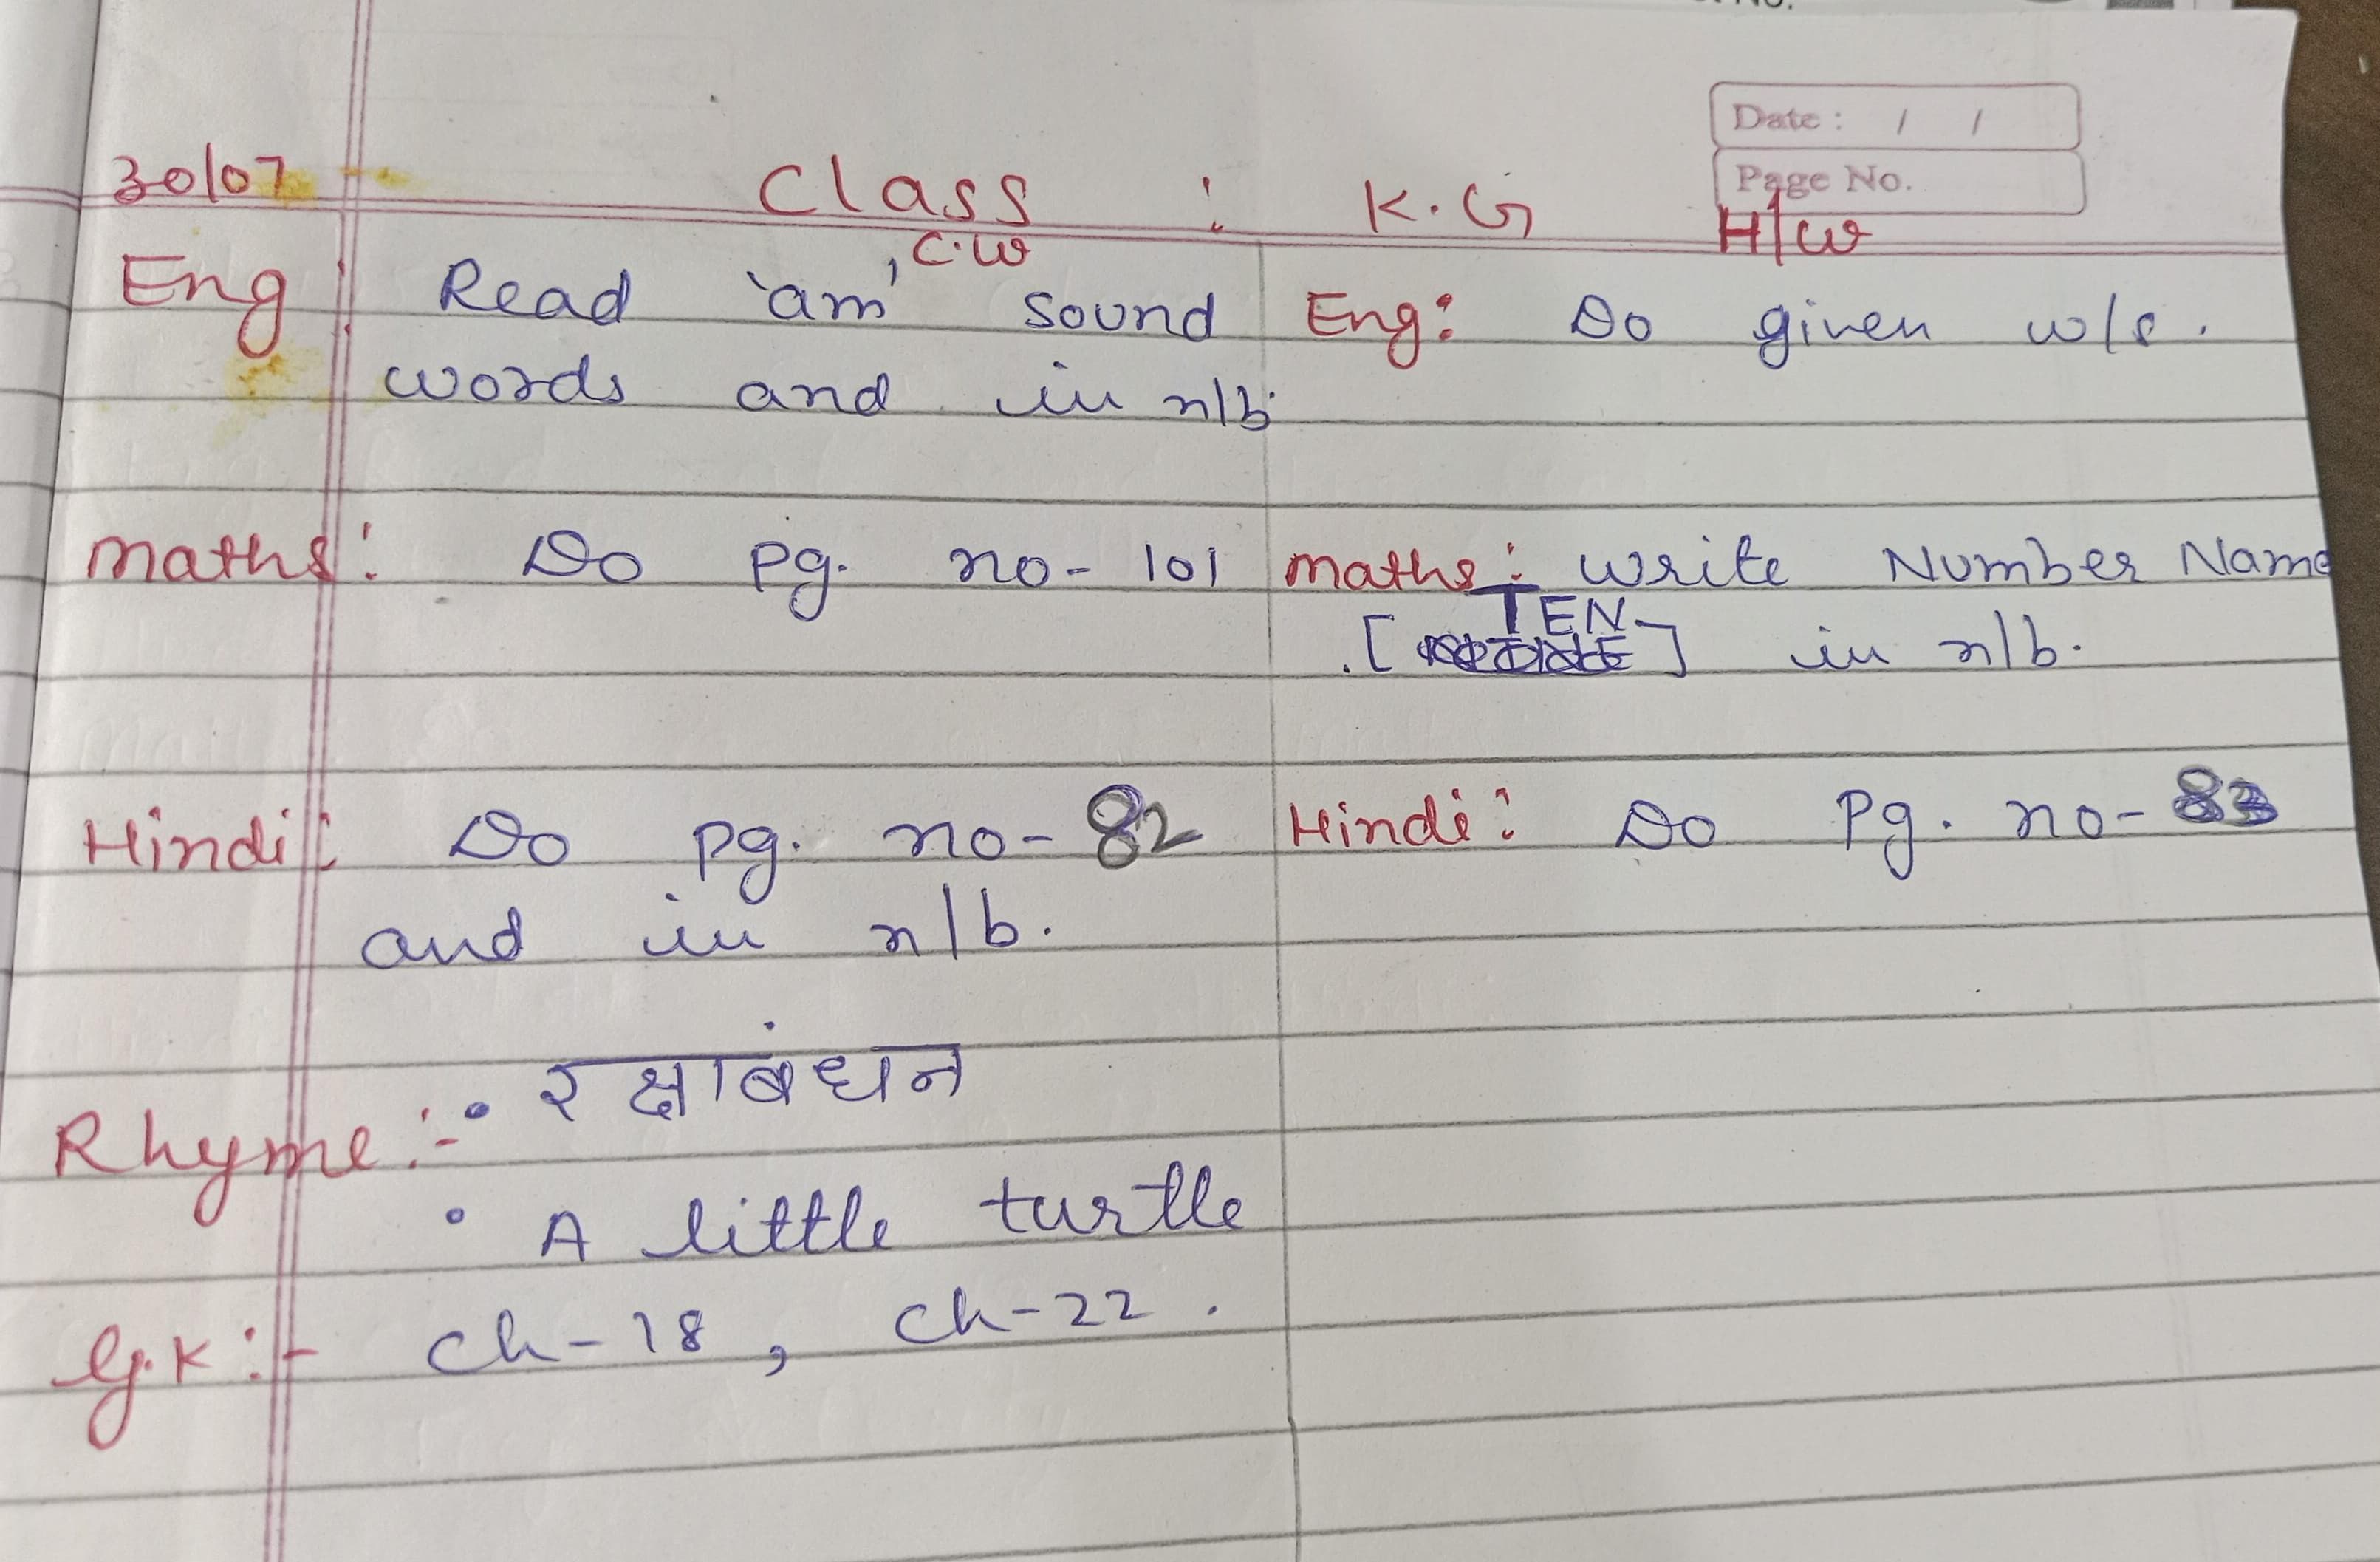 Date : / /
Page No.
30/07 Class : K.G
C.W
H/W
Eng : Read 'am' sound
words and in n/b.
Eng : Do given w/s.
Maths : Do pg. no - 101
Maths : Write Number Name
[TEN] in n/b.
Hindi : Do pg. no - 82
and in n/b.
Hindi : Do Pg. no - 83
Rhyme :- • रक्षाबंधन
• A little turtle
G.K :- Ch - 18 , Ch - 22 .